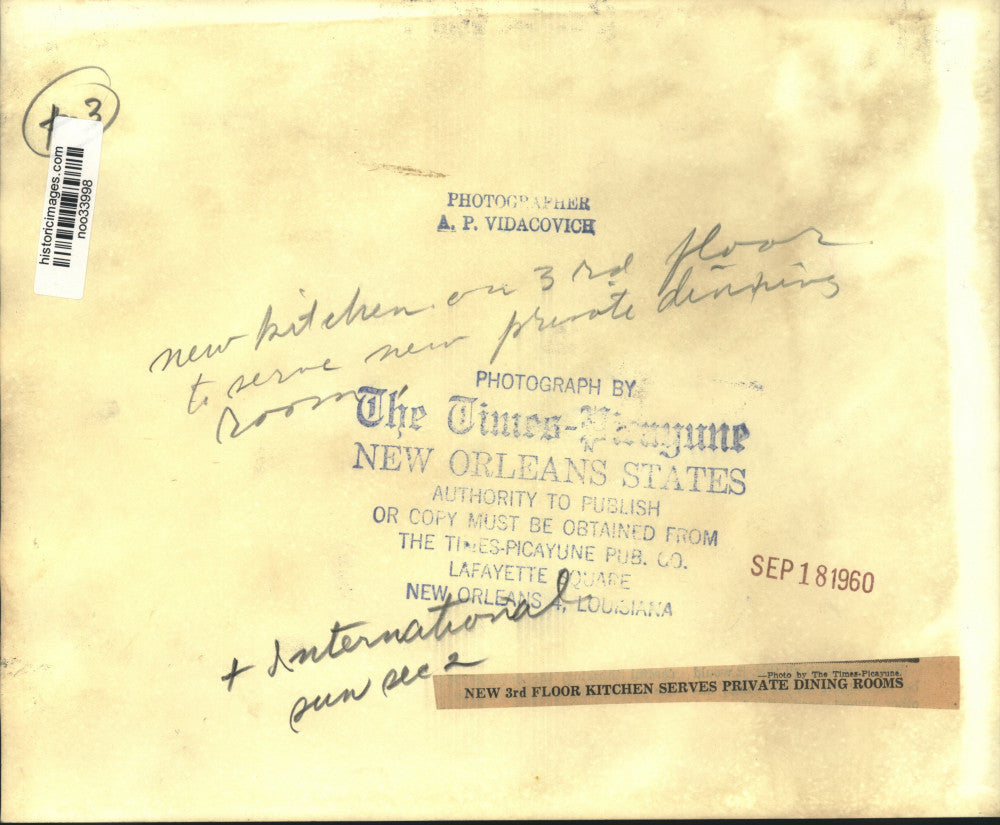 3
historicimages.com
noo33998
PHOTOGRAPHER
A. P. VIDACOVICH
new kitchen on 3rd floor
to serve new private dinning
room
PHOTOGRAPH BY
The Times-Picayune
NEW ORLEANS STATES
AUTHORITY TO PUBLISH
OR COPY MUST BE OBTAINED FROM
THE TIMES-PICAYUNE PUB. CO.
LAFAYETTE SQUARE
NEW ORLEANS 4, LOUISIANA
SEP 18 1960
+ International
sun sec 2
—Photo by The Times-Picayune.
NEW 3rd FLOOR KITCHEN SERVES PRIVATE DINING ROOMS